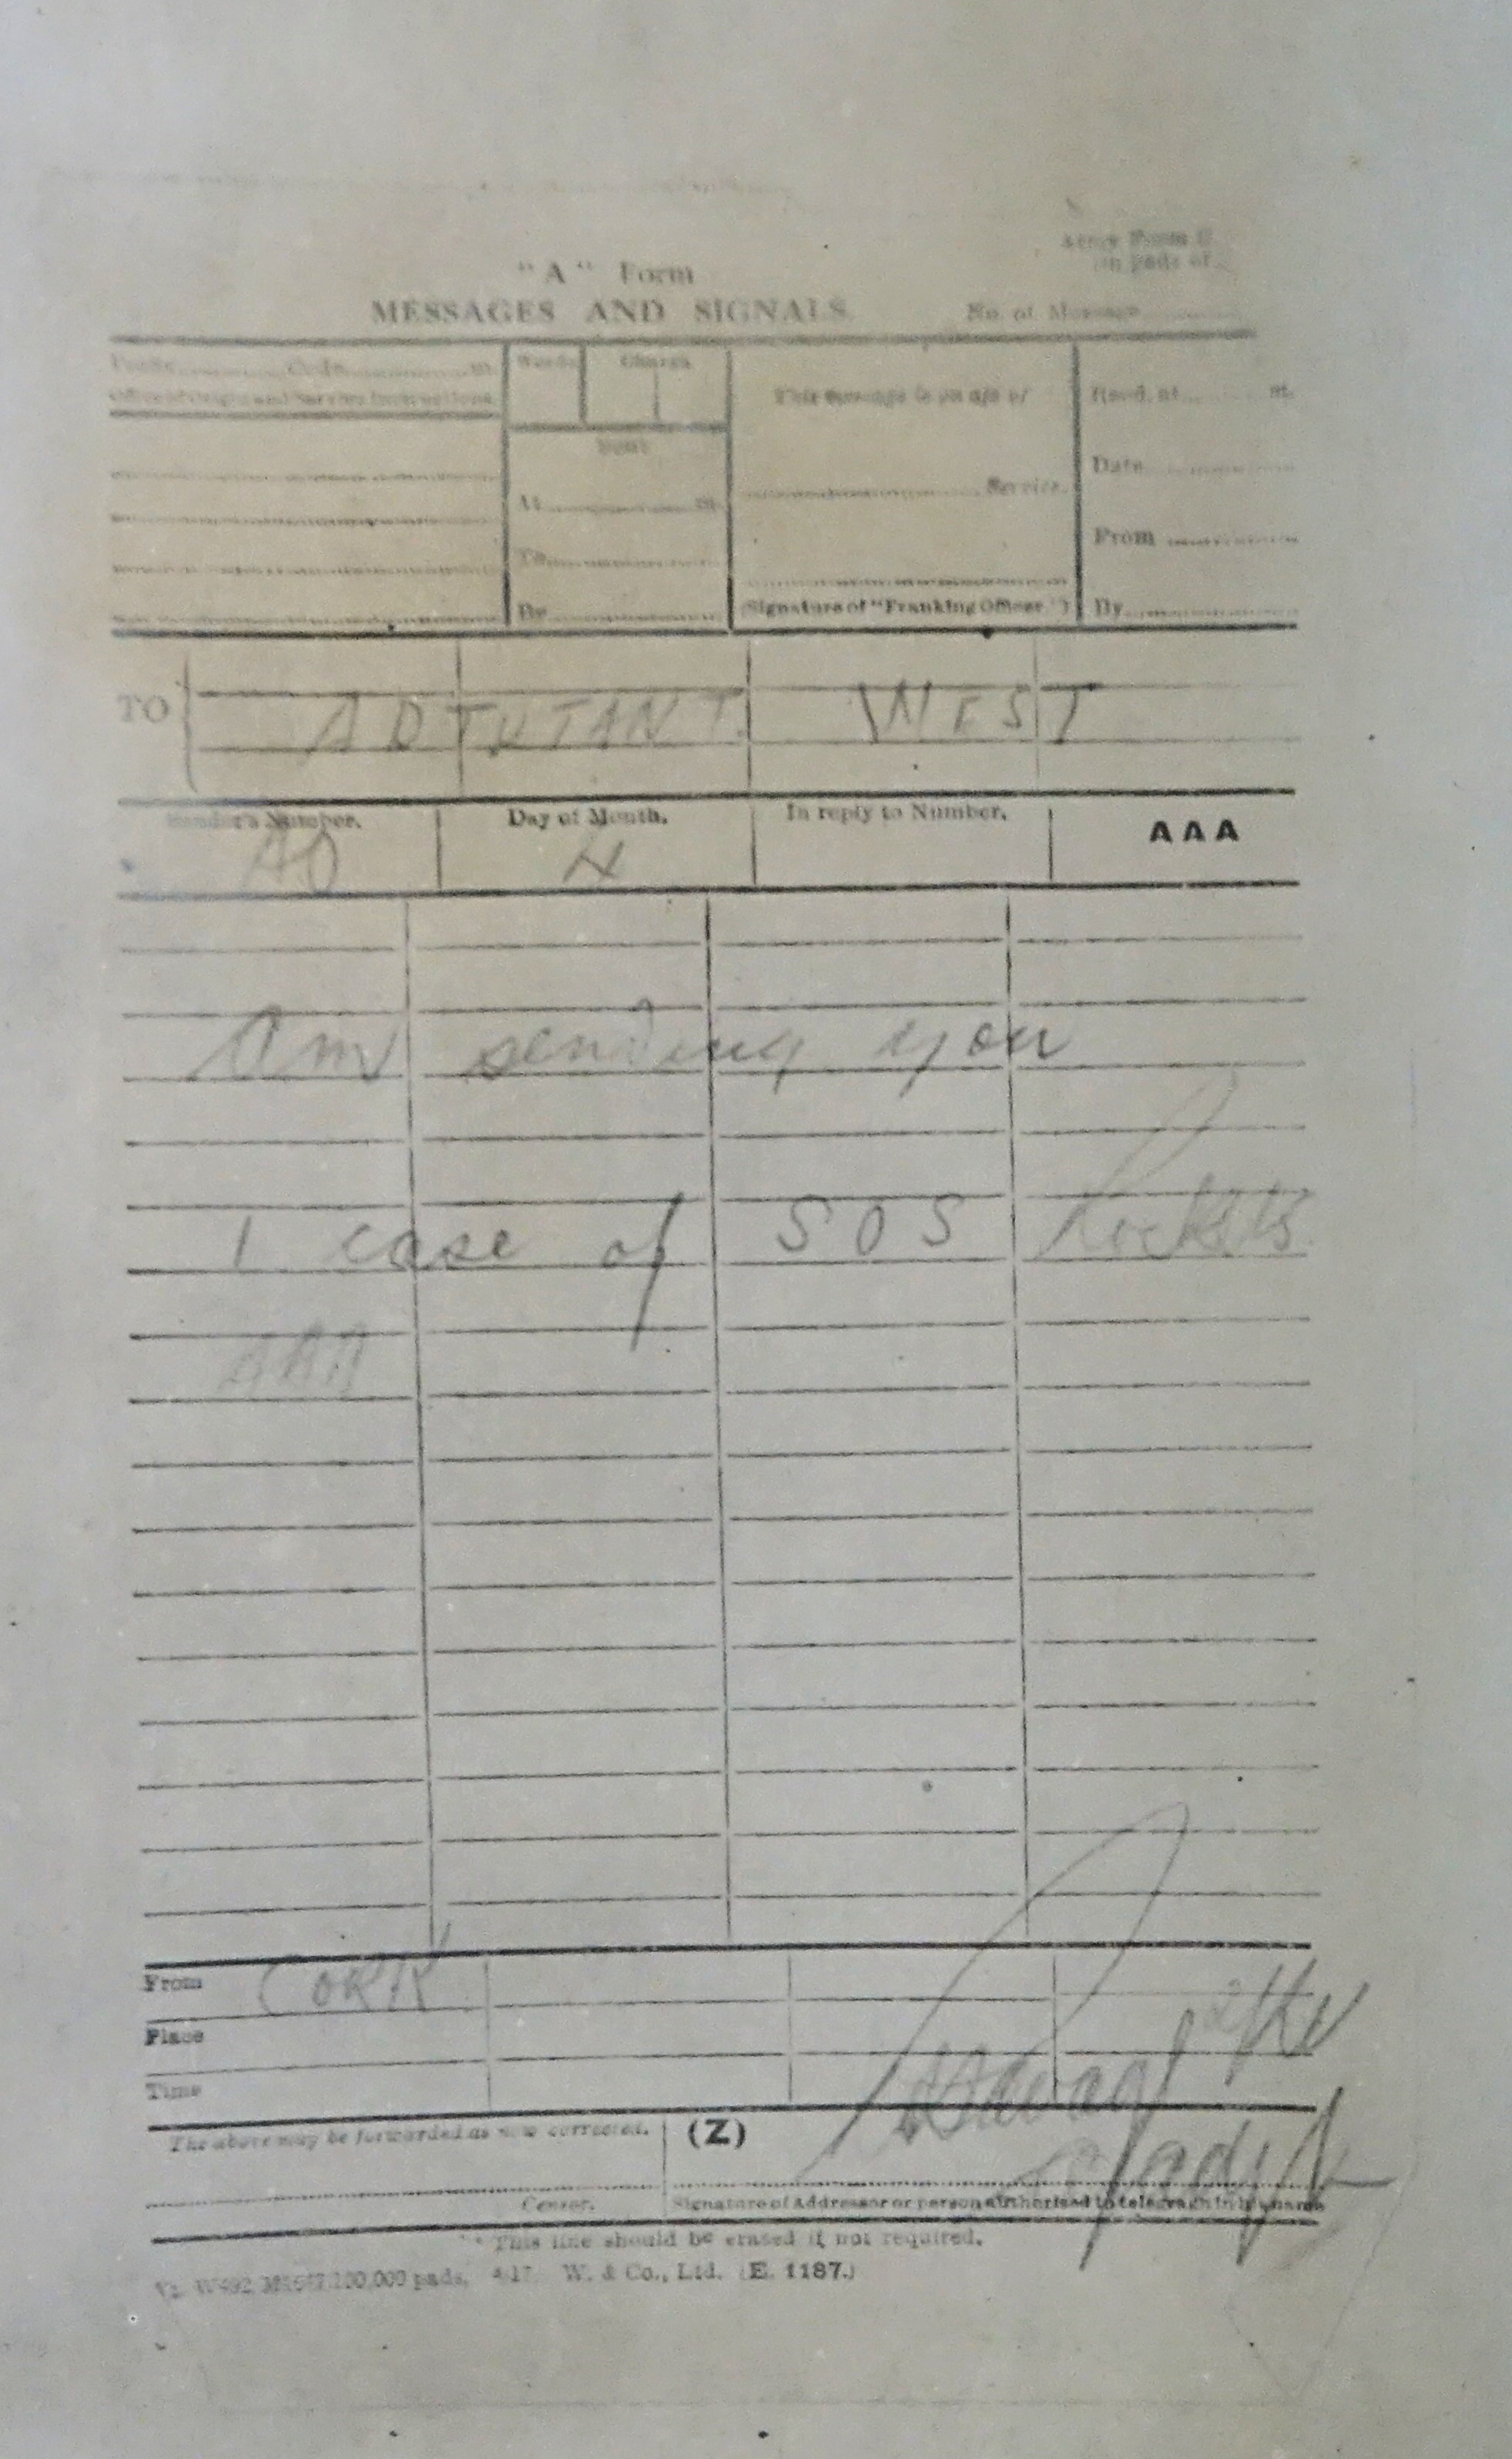 "A" Form
Army Form C
in pads of
MESSAGES AND SIGNALS.
No. of Message
Prefix Code m.
Words Charge
This message is on a/c of
Recd. at m.
Office of Origin and Service Instructions.
Sent
Date
At m.
Service.
To
From
By
(Signature of "Franking Officer.")
By
TO
ADJUTANT. WEST
Sender's Number. Day of Month. In reply to Number. AAA
AD 4
Am sending you
1 case of SOS Rockets
AAA
From CORK
Place
Time
The above may be forwarded as now corrected. (Z)
Censor. Signature of Addressor or person authorised to telegraph in his name
* This line should be erased if not required.
100,000 pads. 4/17 W. & Co., Ltd. (E. 1187.)